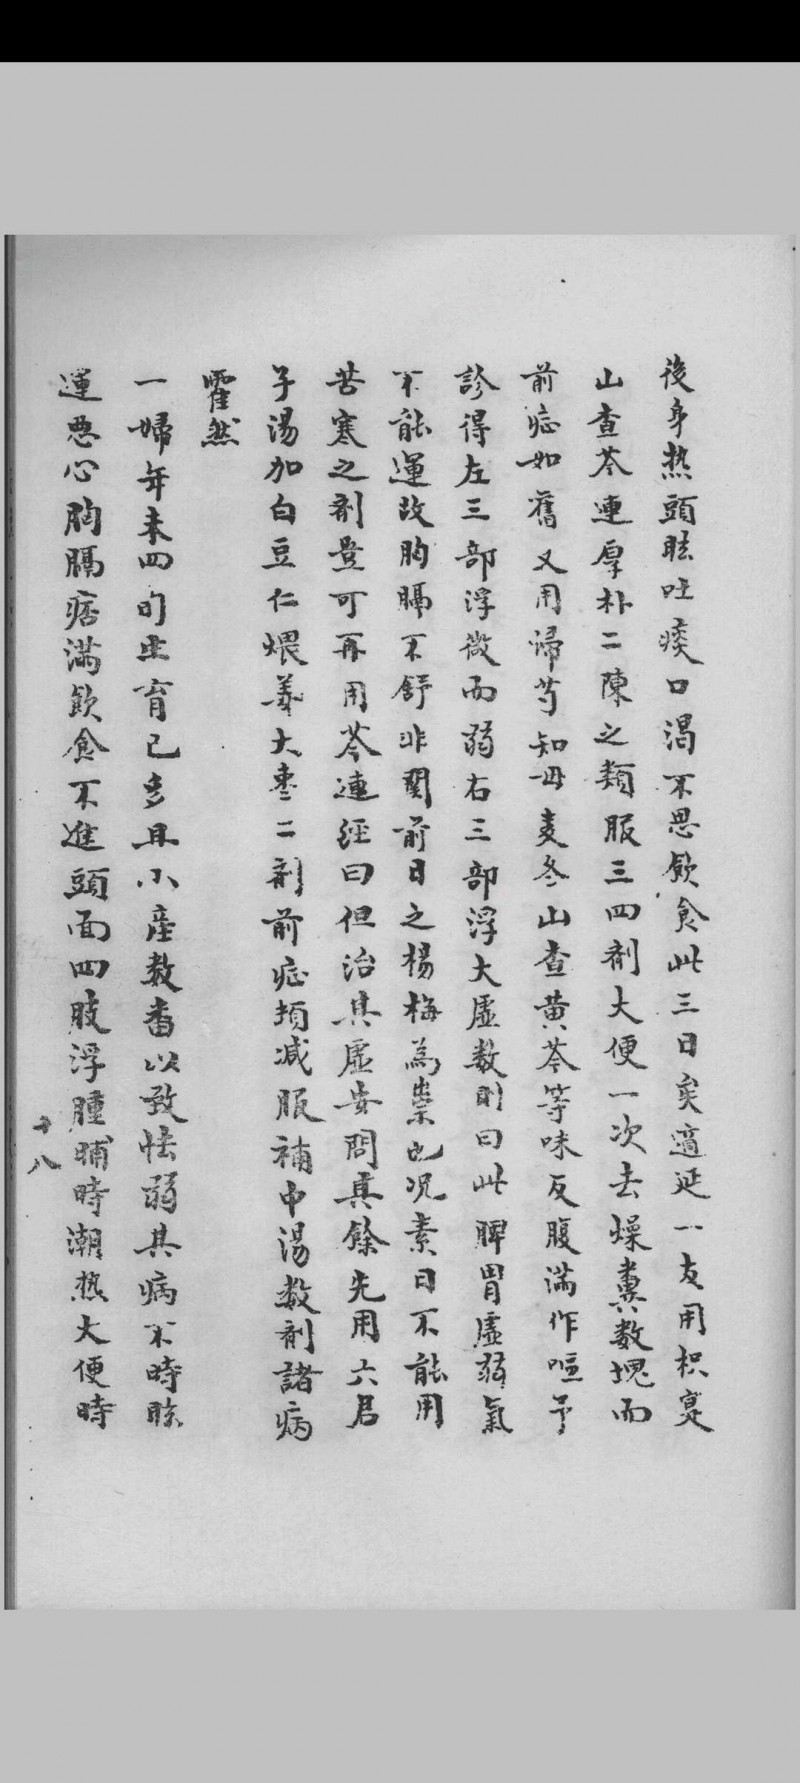 後身热頭眩吐痰口渴不思飲食此三日矣適延一友用枳蔞
山查芩連厚朴二陳之類服三四剤大便一次去燥糞数塊而
前症如舊又用歸芍知母麦冬山查黄芩等味反腹滿作嘔予
診得左三部浮微而弱右三部浮大虛数則曰此脾胃虛弱氣
不能運故胸膈不舒非關前日之楊梅為祟也况素日不能用
苦寒之剤豈可再用芩連經曰但治其虛安問其餘先用六君
子湯加白豆仁煨姜大棗二剤前症頓减服補中湯数剤諸病
霍然
一婦年未四旬生育已多且小産数番以致怯弱其病不時眩
運惡心胸膈痞滿飲食不進頭面四肢浮腫晡時潮热大便時
十八